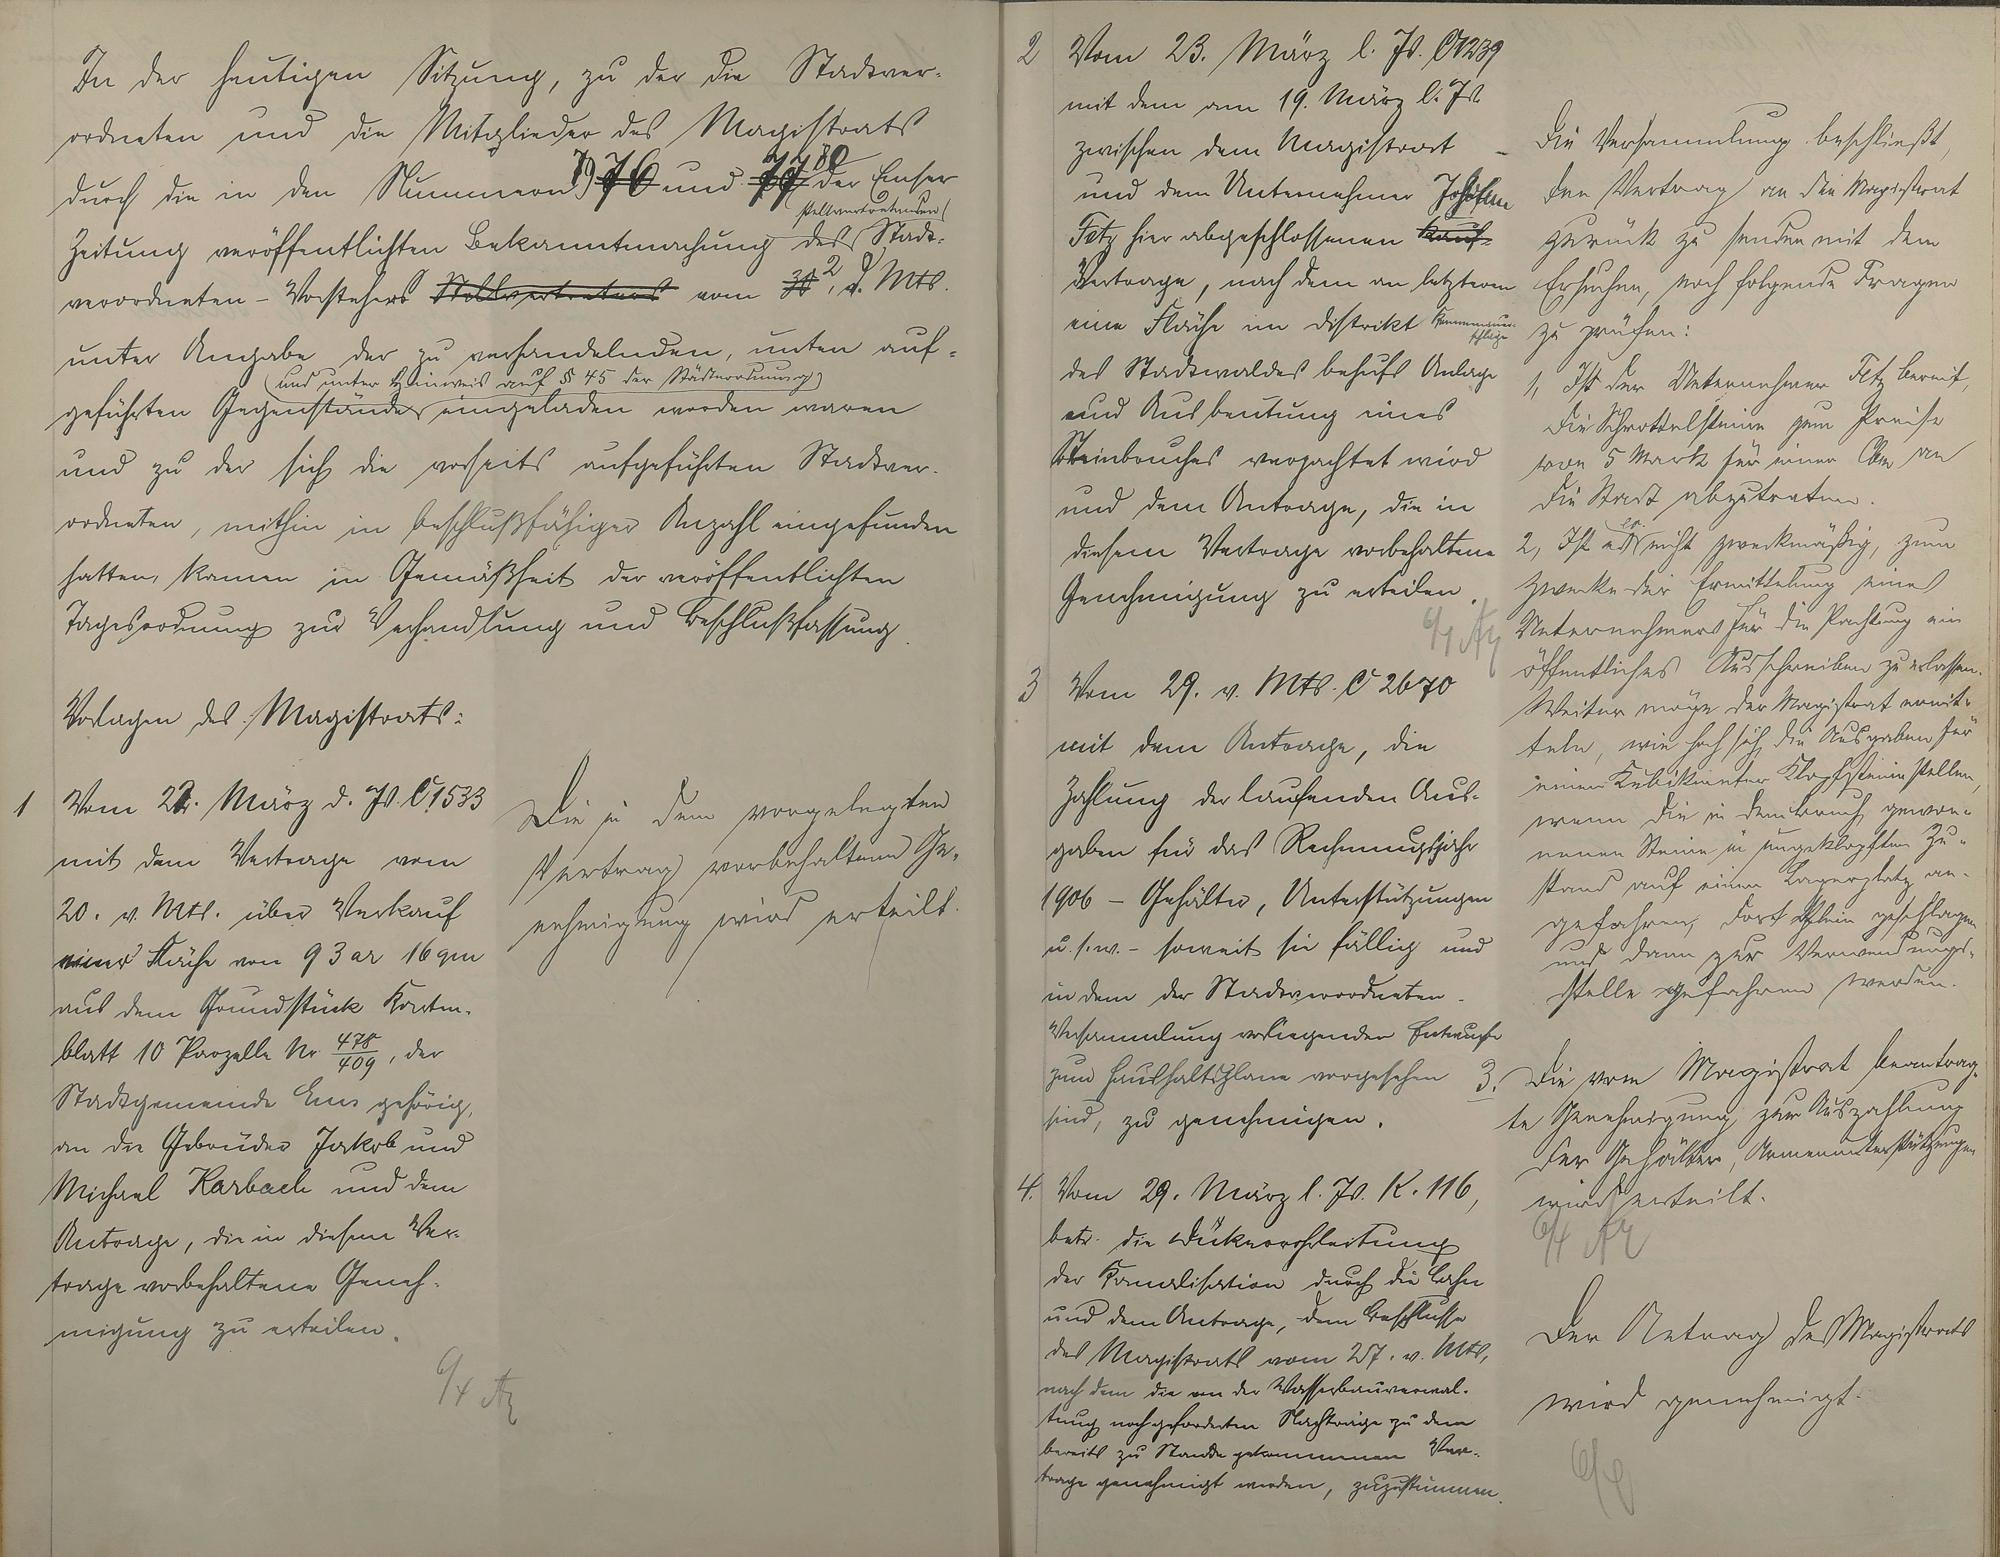 In der heutigen Sitzung, zu der die Stadtver-
ordneten und die Mitglieder des Magistrats
durch die in den Nummern 79 76 und 77 80 der Emser
stellvertretenden
Zeitung veröffentlichten Bekanntmachung des Stadt-
verordneten-Vorstehers Stellvertreters vom 30 2. d. Mts.
unter Angabe der zu verhandelnden, unten auf-
(und unter Hinweis auf § 45 der Städteordnung)
geführten Gegenstände eingeladen worden waren
und zu der sich die vorseits aufgeführten Stadtver-
ordneten, mithin in beschlußfähiger Anzahl eingefunden
hatten, kamen in Gemäßheit der veröffentlichten
Tagesordnung zur Verhandlung und Beschlußfassung
Vorlagen des Magistrats:
1 Vom 22. März d. Js. C 1533
mit dem Vertrage vom
20. v. Mts. über Verkauf
einer Fläche von 93 ar 16 qm
aus dem Grundstück Karten-
blatt 10 Parzelle Nr 478/409, der
Stadtgemeinde Ems gehörig,
an die Gebrüder Jakob und
Michael Karbach und dem
Antrage, die in diesem Ver-
trage vorbehaltene Geneh-
migung zu erteilen.
6/4
Die in dem vorgelegten
Vertrag vorbehaltene Ge-
nehmigung wird erteilt.
2 Vom 23. März l. Js. C 1239
mit dem am 19. März l. Js.
zwischen dem Magistrat
und dem Unternehmer
Fetz hier abgeschlossenen Kauf-
Vertrage, nach dem an letzteren
eine Fläche im Distrikt
des Stadtwaldes behufs Anlage
und Ausbeutung eines
Steinbruches verpachtet wird
und dem Antrage, die in
diesem Vertrage vorbehaltene
Genehmigung zu erteilen.
6/4
Die Versammlung beschließt,
den Vertrag an den Magistrat
zurück zu senden mit dem
Ersuchen, noch folgende Fragen
zu prüfen:
1, Ist der Unternehmer Fetz bereit,
die Schrottelsteine zum Preise
von 5 Mark für einen Cbm an
die Stadt abzutreten.
2, Ist es nicht zweckmäßig, zum
Zwecke der Ermittelung eines
Unternehmers für die Pachtung ein
öffentliches Ausschreiben zu erlassen.
Weiter möge der Magistrat ermit-
teln, wie hoch sich die Ausgaben für
einen Kubikmeter Klopfsteine stellen,
wenn die in dem Bruch gewon-
nenen Steine in ungeklopftem Zu-
stand auf einen Lagerplatz an-
gefahren, dort klein geschlagen
und dann zur Verwendungs-
stelle gefahren werden.
3 Vom 29. v. Mts. C 2670
mit dem Antrage, die
Zahlung der laufenden Aus-
gaben für das Rechnungsjahr
1906 - Gehälter, Unterstützungen
u.s.w. - soweit sie fällig und
in dem der Stadtverordneten-
Versammlung vorliegenden Entwurfe
zum Haushaltsplane vorgesehen
sind, zu genehmigen.
3. Die vom Magistrat beantrag-
te Genehmigung zur Auszahlung
der Gehälter, Armenunterstützungen
wird erteilt.
6/4
4. Vom 29. März l. Js. K. 116,
betr. die Dükerrohrleitung
der Kanalisation durch die Lahn
und dem Antrage, dem Beschlusse
des Magistrats vom 27. v. Mts,
nach dem die von der Wasserbauverwal-
tung noch geforderten Nachträge zu dem
bereits zu Stande gekommenen Ver-
trage genehmigt werden, zuzustimmen.
Der Antrag des Magistrats
wird genehmigt.